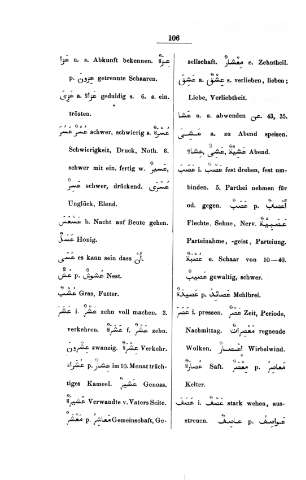 106
عزا u. s. Abkunft bekennen. عزة
p. عزون getrennte Schaaren.
عزى a عزاء geduldig s. 6. a. ein.
trösten.
عسر عسر schwer, schwierig a. عسرة
Schwierigkeit, Druck, Noth. 6.
schwer mit ein, fertig w. عسير
عسرى schwer, drückend. عسر
Unglück, Elend.
عسعس b. Nacht auf Beute gehen.
عسل Honig.
عسى es kann sein dass أن.
عش p. عشوش Nest.
عشب Gras, Futter.
عشر i. عشر zehn voll machen. 2.
verkehren. عشرة f. عشر zehn.
عشرون zwanzig. عشرة Verkehr.
عشراء p. عشار im 10. Monat träch-
tiges Kameel. عشير Genoss,
عشيرة Verwandte v. Vaters Seite.
معشر p. معاشر Gemeinschaft, Ge-
sellschaft. معشار e. Zehntheil.
عشق a. عشق s. verlieben, lieben;
Liebe, Verliebtheit.
عشا u. a. abwenden عن. 43, 35.
عشى a. zu Abend speisen.
عشى, عشية, عشاء Abend.
عصب i. عصب fest drehen, fest um-
binden. 5. Parthei nehmen für
od. gegen. عصب p. أعصاب
Flechte, Sehne, Nerv. عصبية
Parteinahme, -geist, Parteiung.
عصبة e. Schaar von 10—40.
عصيب gewaltig, schwer.
عصيدة p. عصائد Mehlbrei.
عصر i. pressen. عصر Zeit, Periode,
Nachmittag. معصرات regnende
Wolken. إعصار Wirbelwind.
عصارة Saft. معصر p. معاصر
Kelter.
عصف i. عصف stark wehen, aus-
streuen. عاصف p. عواصف